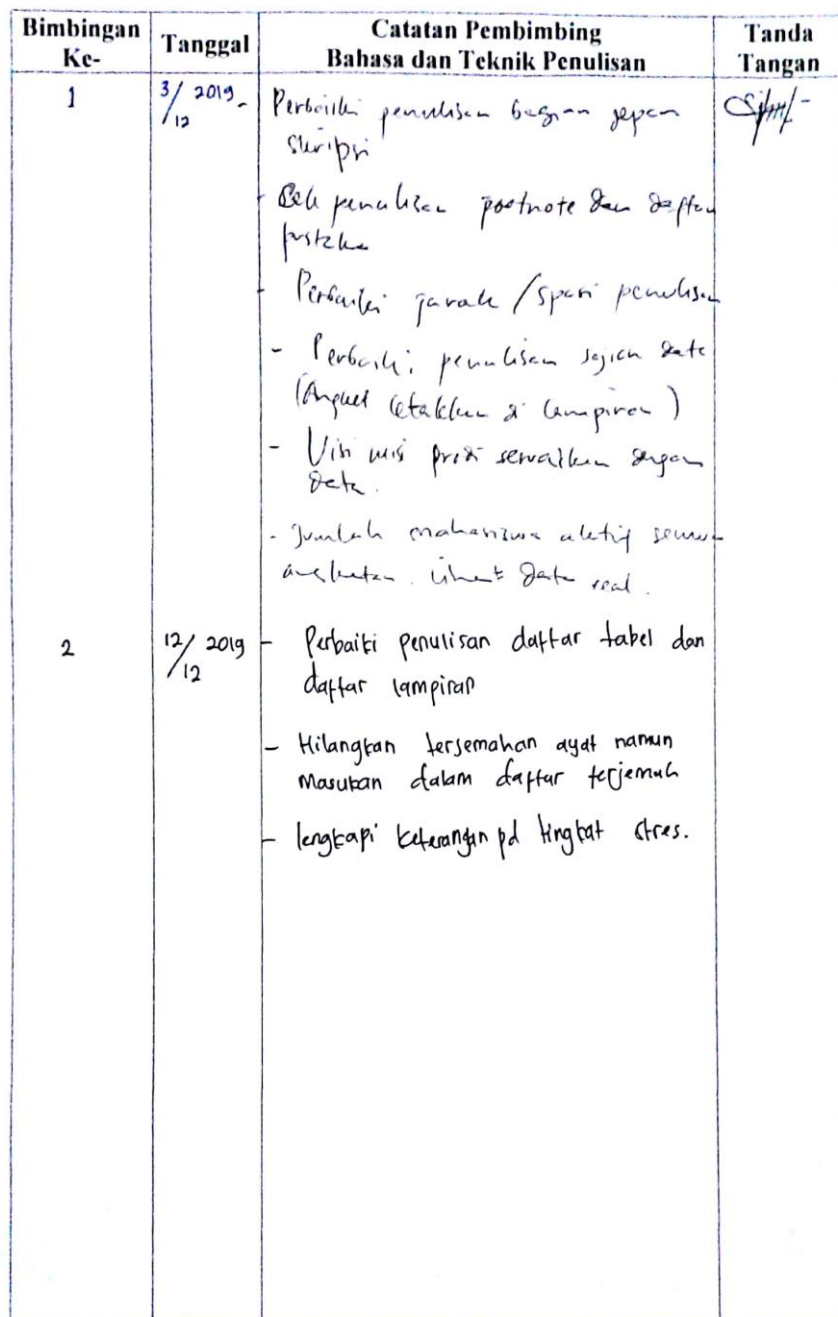 Bimbingan Ke-
Tanggal
Catatan Pembimbing
Bahasa dan Teknik Penulisan
Tanda Tangan
1
3/12 2019
- Perbaiki penulisan bagian depan
skripsi
- Cek penulisan footnote dan daftar
pustaka
- Perbaiki jarak / spasi penulisan
- Perbaiki penulisan sajian data
(Angket letakkan di lampiran)
- Visi misi prodi sesuaikan dengan
data.
- Jumlah mahasiswa aktif semua
angkatan. Lihat data real.
2
12/12 2019
- Perbaiki penulisan daftar tabel dan
daftar lampiran
- Hilangkan tersemahan ayat namun
Masukan dalam daftar terjemah
- lengkapi keterangan pd tingkat stres.